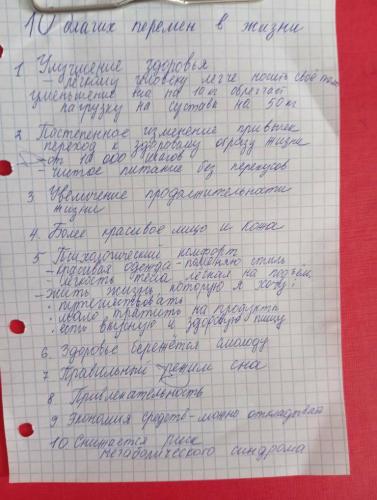 10 благих перемен в жизни
1 Улучшение здоровья
легкому человеку легче носить своё тело
уменьшение на 10 кг облегчает
нагрузку на суставы на 50 кг
2 Постепенное изменение привычек
переход к здоровому образу жизни
- от 10 000 шагов
- чистое питание без перекусов
3 Увеличение продолжительности
жизни
4. Более красивое лицо и кожа
5 Психологический комфорт
- красивая одежда - поменяю стиль
- легкость тела легкая на подъём
- жить жизнь, которую я хочу!
· путешествовать
· мало тратить на продукты
· есть вкусную и здоровую пищу
6. Здоровье бережётся смолоду
7 Правильный режим сна
8 Привлекательность
9 Экономия средств - можно откладывать
10. Снижается риск
метаболического синдрома